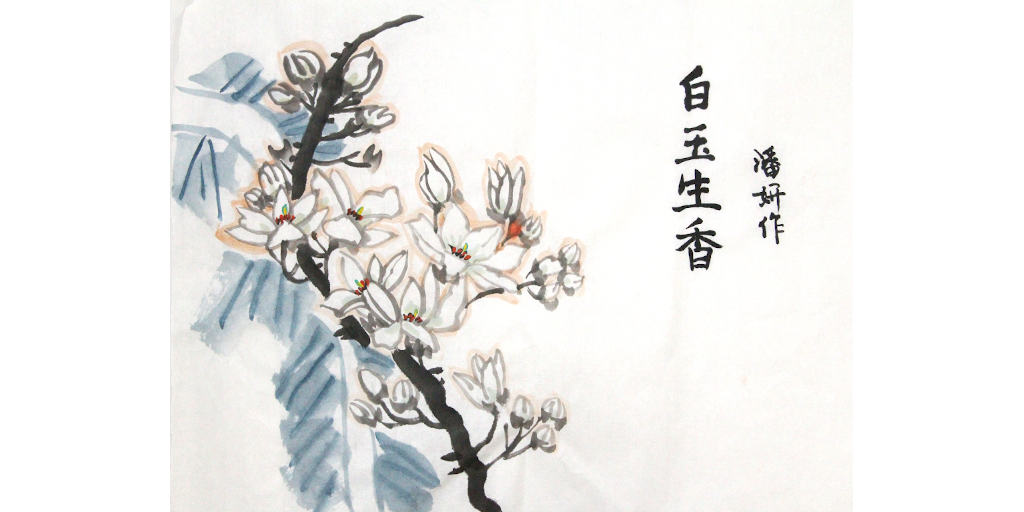 白玉生香
潘妍作